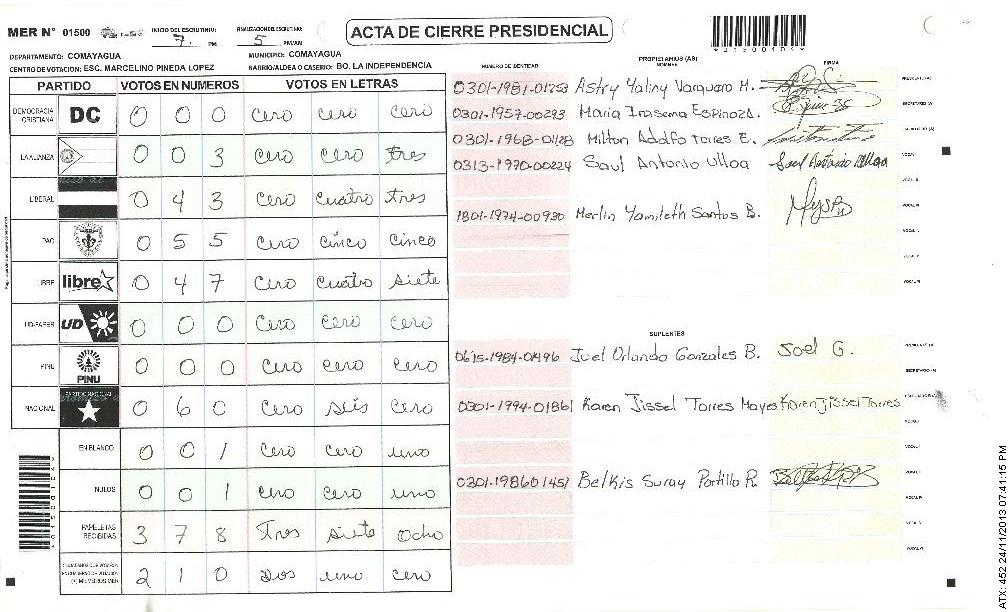 MER N° 01500 INICIO DEL ESCRUTINIO: 7 PM FINALIZACION DEL ESCRUTINIO: 5 PM/AM
ACTA DE CIERRE PRESIDENCIAL
DEPARTAMENTO: COMAYAGUA MUNICIPIO: COMAYAGUA
CENTRO DE VOTACION: ESC. MARCELINO PINEDA LOPEZ BARRIO/ALDEA O CASERIO: BO. LA INDEPENDENCIA
PARTIDO VOTOS EN NUMEROS VOTOS EN LETRAS
DEMOCRACIA CRISTIANA DC 0 0 0 cero cero cero
LA ALIANZA 0 0 3 cero cero tres
LIBERAL 0 4 3 cero cuatro tres
PAC 0 5 5 cero cinco cinco
LIBRE libre 0 4 7 cero cuatro siete
UD-FAPER UD 0 0 0 cero cero cero
PINU PINU 0 0 0 cero cero cero
NACIONAL PARTIDO NACIONAL 0 6 0 cero seis cero
EN BLANCO 0 0 1 cero cero uno
NULOS 0 0 1 cero cero uno
PAPELETAS RECIBIDAS 3 7 8 Tres siete ocho
CIUDADANOS QUE VOTARON EN CUADERNO DE VOTACION (+) MIEMBROS MER 2 1 0 Dos uno cero
PROPIETARIOS (AS)
NUMERO DE IDENTIDAD NOMBRE FIRMA
0301-1981-01253 Astry Yaliny Varquero M. PRESIDENTE (A)
0301-1957-00293 Maria Irasema Espinoza. SECRETARIO (A)
0301-1968-01128 Milton Adolfo Torres E.
0313-1970-00224 Saul Antonio Ulloa Saul Antonio Ulloa VOCAL I
VOCAL II
1801-1974-00930 Merlin Yamileth Santos B. VOCAL III
VOCAL IV
VOCAL V
VOCAL VI
SUPLENTES
0615-1984-01496 Juel Orlando Gonzales B. Joel G. PRESIDENTE (A)
SECRETARIO (A)
0301-1994-01861 Karen Jissel Torres Mayes Karen Jissel Torres
VOCAL I
VOCAL II
0301-198601451 Belkis Suray Portillo R. VOCAL III
VOCAL IV
VOCAL V
VOCAL VI
ATX: 452 24/11/2013 07:41:15 PM